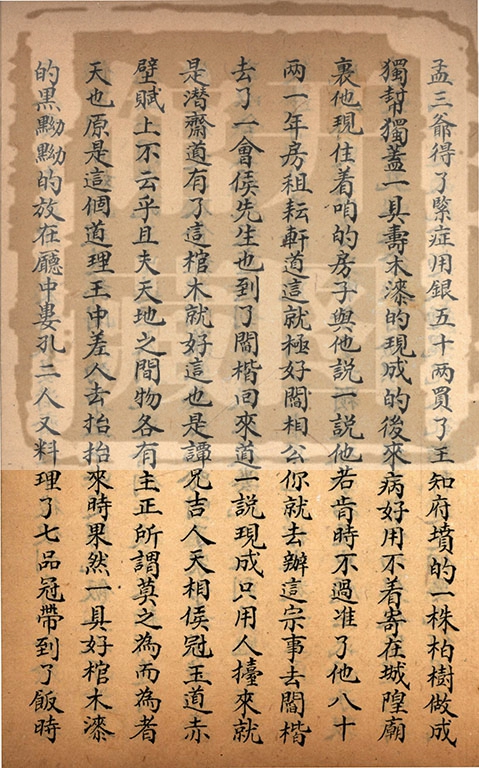 孟三爺得了緊症用銀五十两買了王知府墳的一株柏樹做成
獨幇獨蓋一具壽木漆的現成的後來病好用不着寄在城隍廟
裏他現住着咱的房子與他説一説他若肯時不過准了他八十
两一年房租耘軒道這就極好閻相公你就去辦這宗事去閻楷
去了一會侯先生也到了閻楷回來道一説現成只用人擡來就
是潛齋道有了這棺木就好這也是譚兄吉人天相侯冠玉道赤
壁賦上不云乎且夫天地之間物各有主正所謂莫之為而為者
天也原是這個道理王中差人去抬抬來時果然一具好棺木漆
的黒黝黝的放在廳中婁孔二人又料理了七品冠帶到了飯時